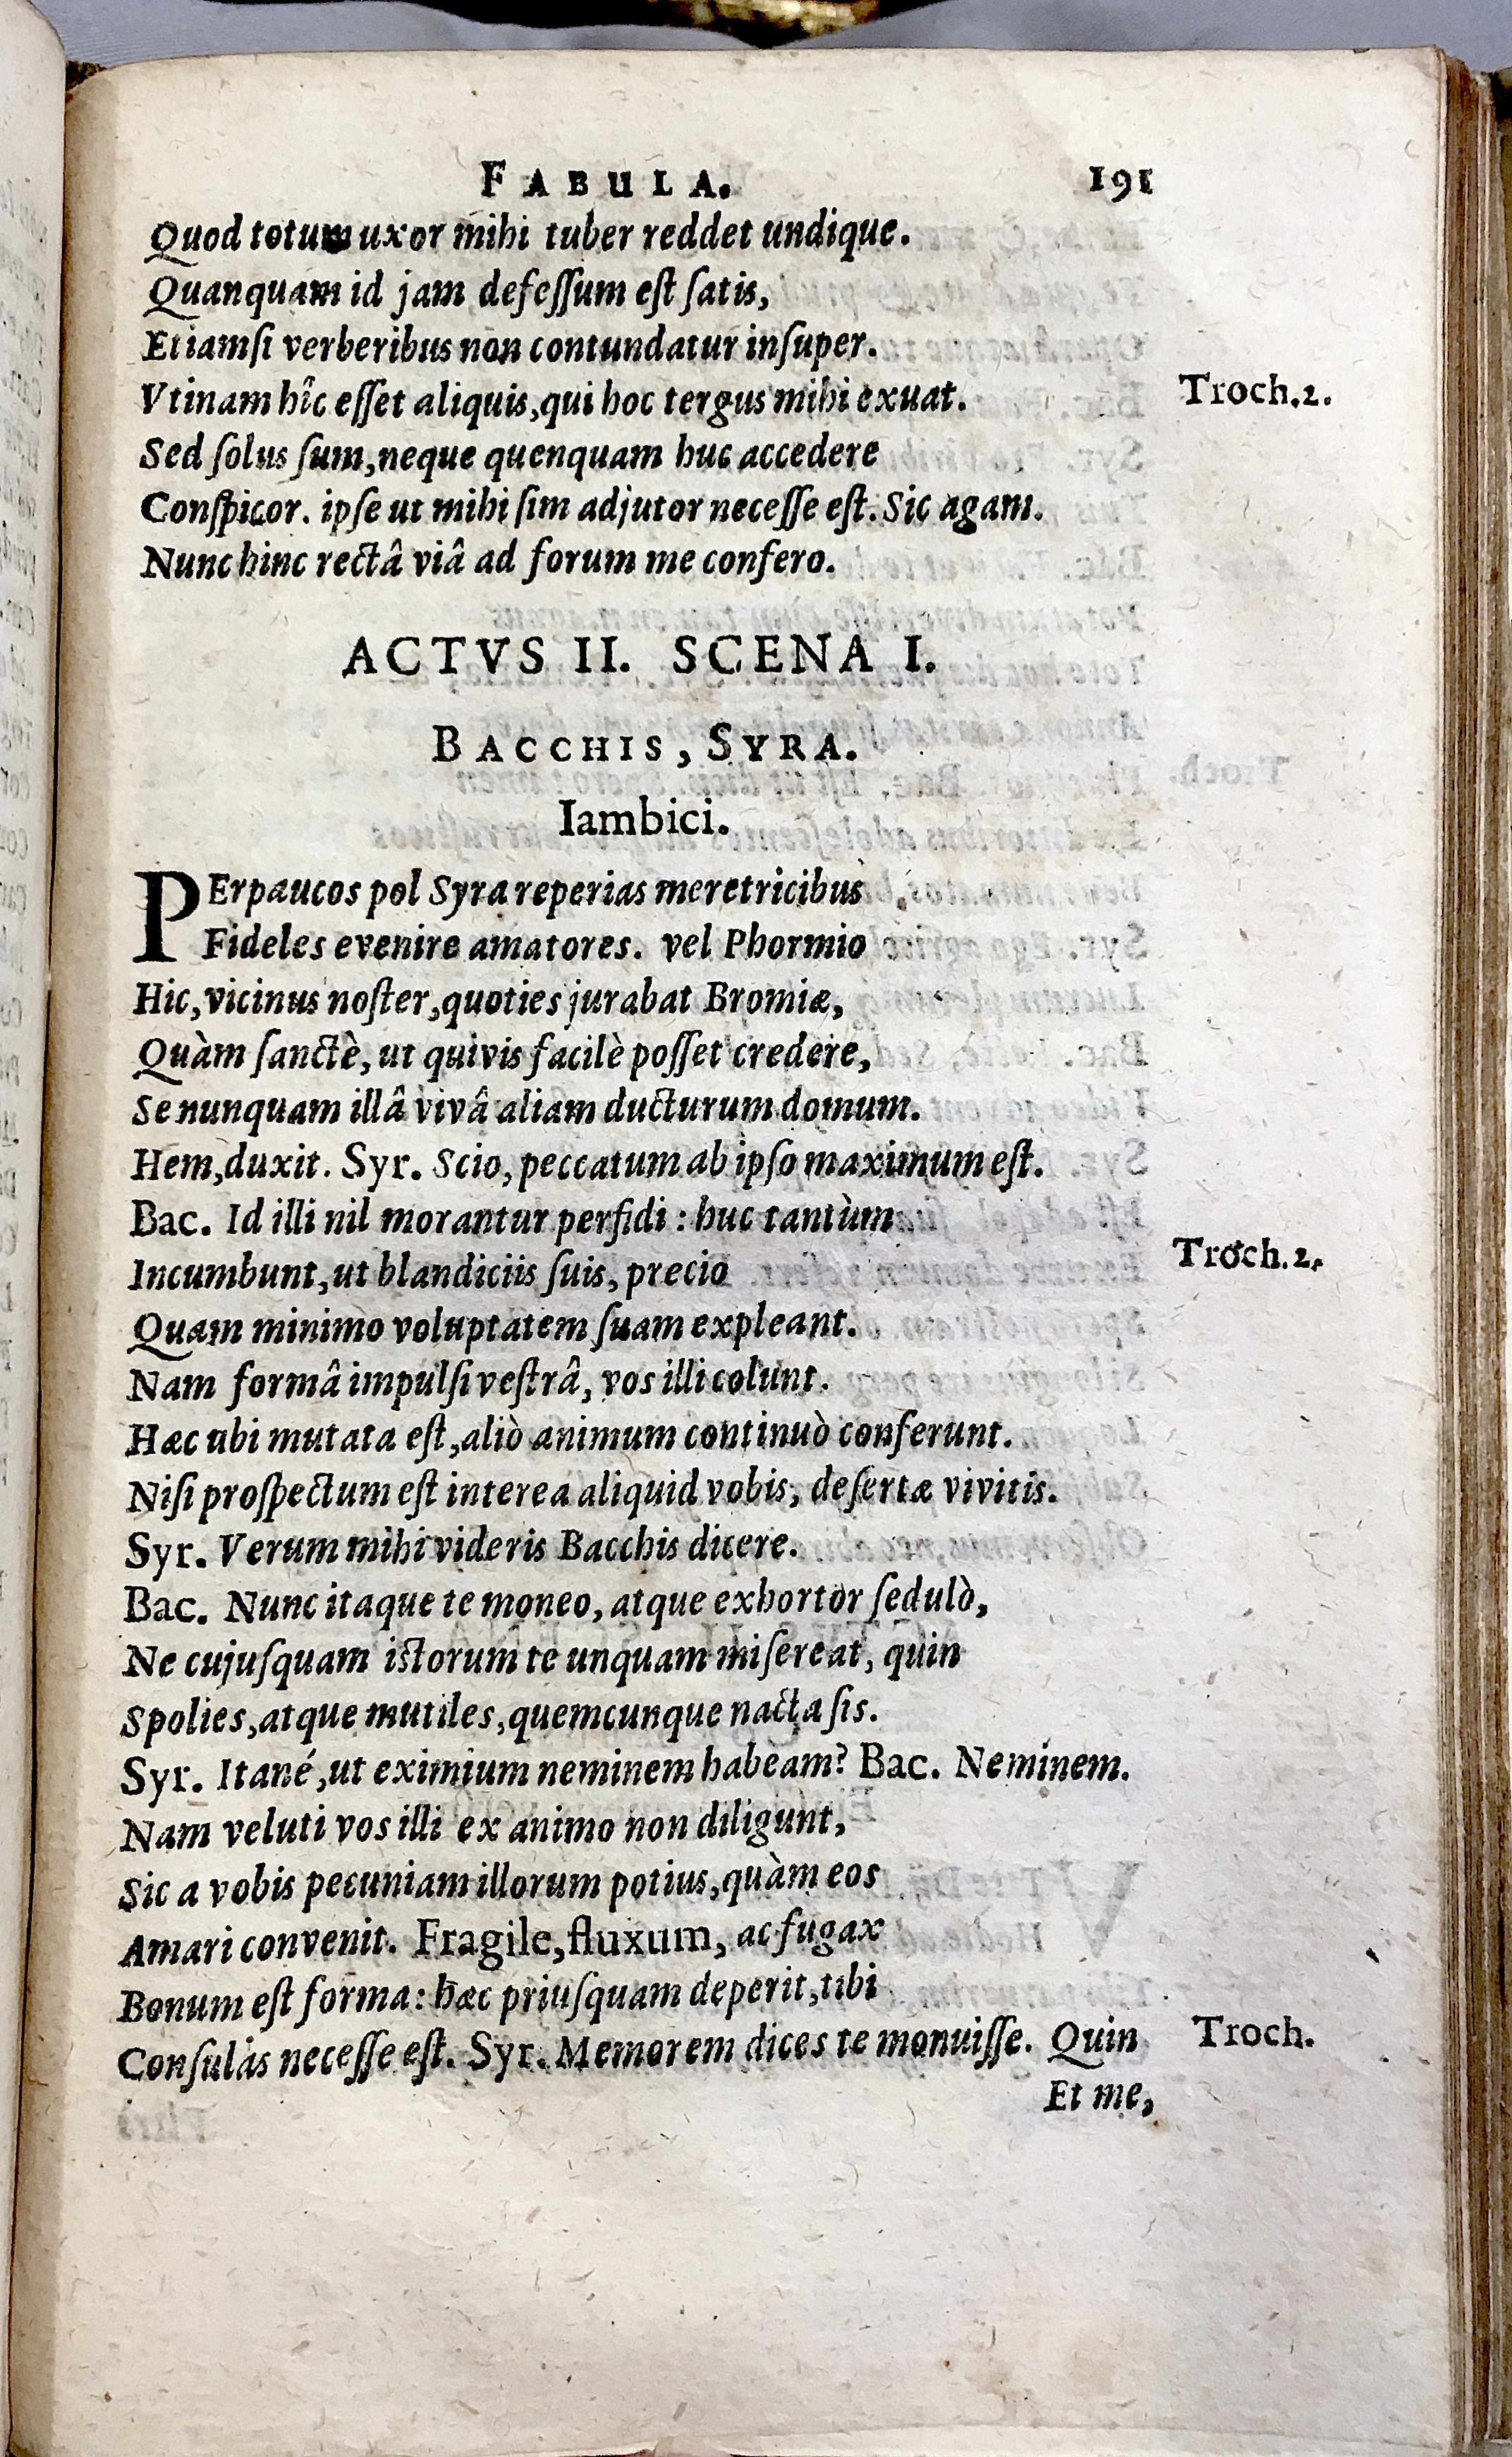 FABULA. 191
Quod totum uxor mihi tuber reddet undique.
Quanquam id jam defeſſum eſt ſatis,
Etiamſi verberibus non contundatur inſuper.
Vtinam hîc eſſet aliquis, qui hoc tergus mihi exuat. Troch.2.
Sed ſolus ſum, neque quenquam huc accedere
Conſpicor. ipſe ut mihi ſim adjutor neceſſe eſt. Sic agam.
Nunc hinc rectâ viâ ad forum me confero.
ACTVS II. SCENA I.
BACCHIS, SYRA.
Iambici.
PErpaucos pol Syra reperias meretricibus
Fideles evenire amatores. vel Phormio
Hic, vicinus noſter, quoties jurabat Bromiæ,
Quàm ſanctè, ut quivis facilè poſſet credere,
Se nunquam illâ vivâ aliam ducturum domum.
Hem, duxit. Syr. Scio, peccatum ab ipſo maximum eſt.
Bac. Id illi nil morantur perfidi : huc tantùm
Incumbunt, ut blandiciis ſuis, precio Troch.2.
Quam minimo voluptatem ſuam expleant.
Nam formâ impulſi veſtrâ, vos illi colunt.
Hæc ubi mutata eſt, aliò animum continuò conferunt.
Niſi proſpectum eſt interea aliquid vobis, deſertæ vivitis.
Syr. Verum mihi videris Bacchis dicere.
Bac. Nunc itaque te moneo, atque exhortor ſedulò,
Ne cujuſquam istorum te unquam miſereat, quin
Spolies, atque mutiles, quemcunque nacta ſis.
Syr. Itané, ut eximium neminem habeam? Bac. Neminem.
Nam veluti vos illi ex animo non diligunt,
Sic a vobis pecuniam illorum potius, quàm eos
Amari convenit. Fragile, fluxum, ac fugax
Bonum eſt forma : hæc priuſquam deperit, tibi
Conſulas neceſſe eſt. Syr. Memorem dices te monuiſſe. Quin Troch.
Et me,